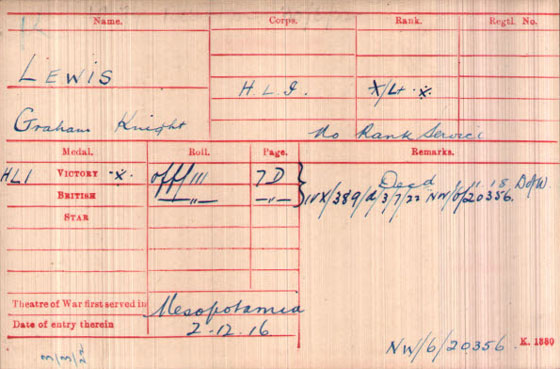 Name. Corps. Rank. Regtl. No.
LEWIS H.L.I. X/Lt ·X·
Graham Knight No Rank Service
Medal. Roll. Page. Remarks.
HLI VICTORY ·X· off/111 7D Dead 11.18. DofW
BRITISH —"— —"— IVX/389/d/3/7/22 NW/6/20356.
STAR
Theatre of War first served in Mesopotamia
Date of entry therein 2-12.16
NW/6/20356 K. 1380